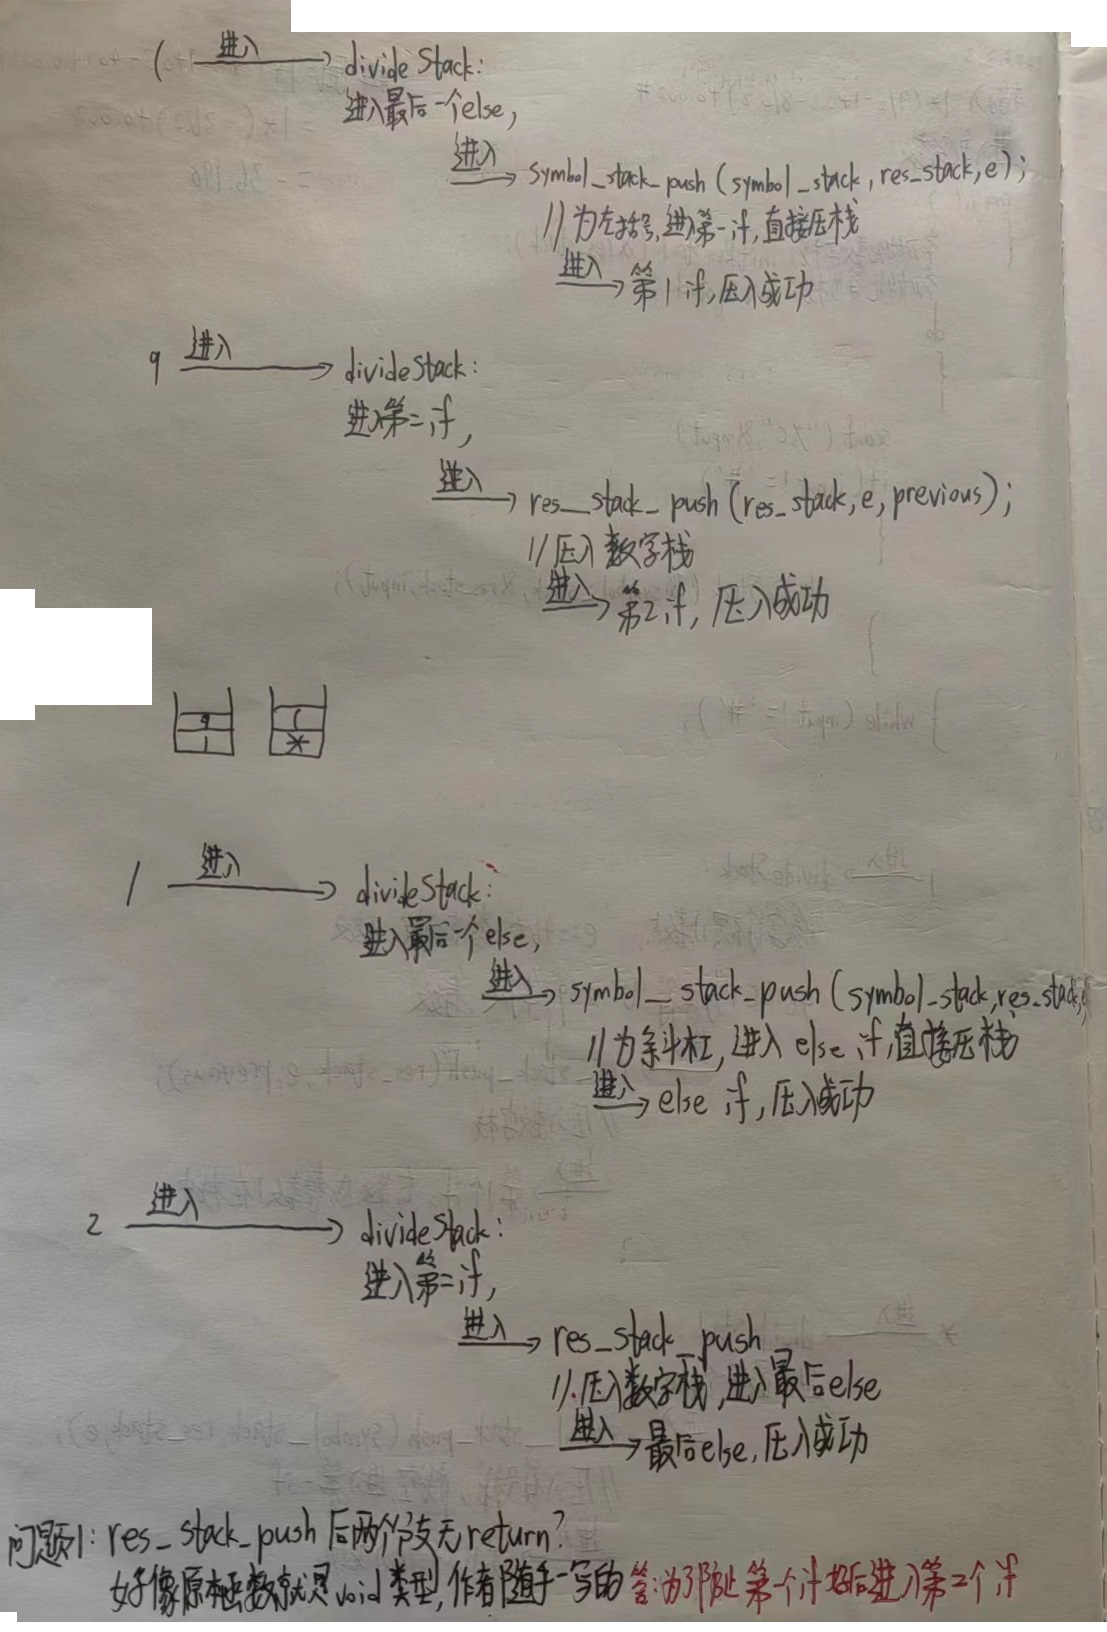 ( 进入 divideStack:
进入最后一个else,
进入 symbol_stack_push (symbol_stack, res_stack, e);
//为左括号,进入第一if,直接压栈
进入 第1if,压入成功
9 进入 divideStack:
进入第二if,
进入 res_stack_push (res_stack, e, previous);
//压入数字栈
进入 第2if, 压入成功
9 (
1 *
/ 进入 divideStack:
进入最后一个else,
进入 symbol_stack_push (symbol_stack, res_stack,e
//为斜杠,进入 else if,直接压栈
进入 else if,压入成功
2 进入 divideStack:
进入第二if,
进入 res_stack_push
//压入数字栈,进入最后else
进入 最后else,压入成功
问题1: res_stack_push 后两个 无return?
好像原本函数就是void类型,作者随手一写的 答:为了防止第一个if 后进入第2个if